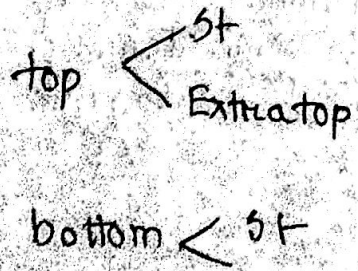 St
top <
Extratop
bottom < St